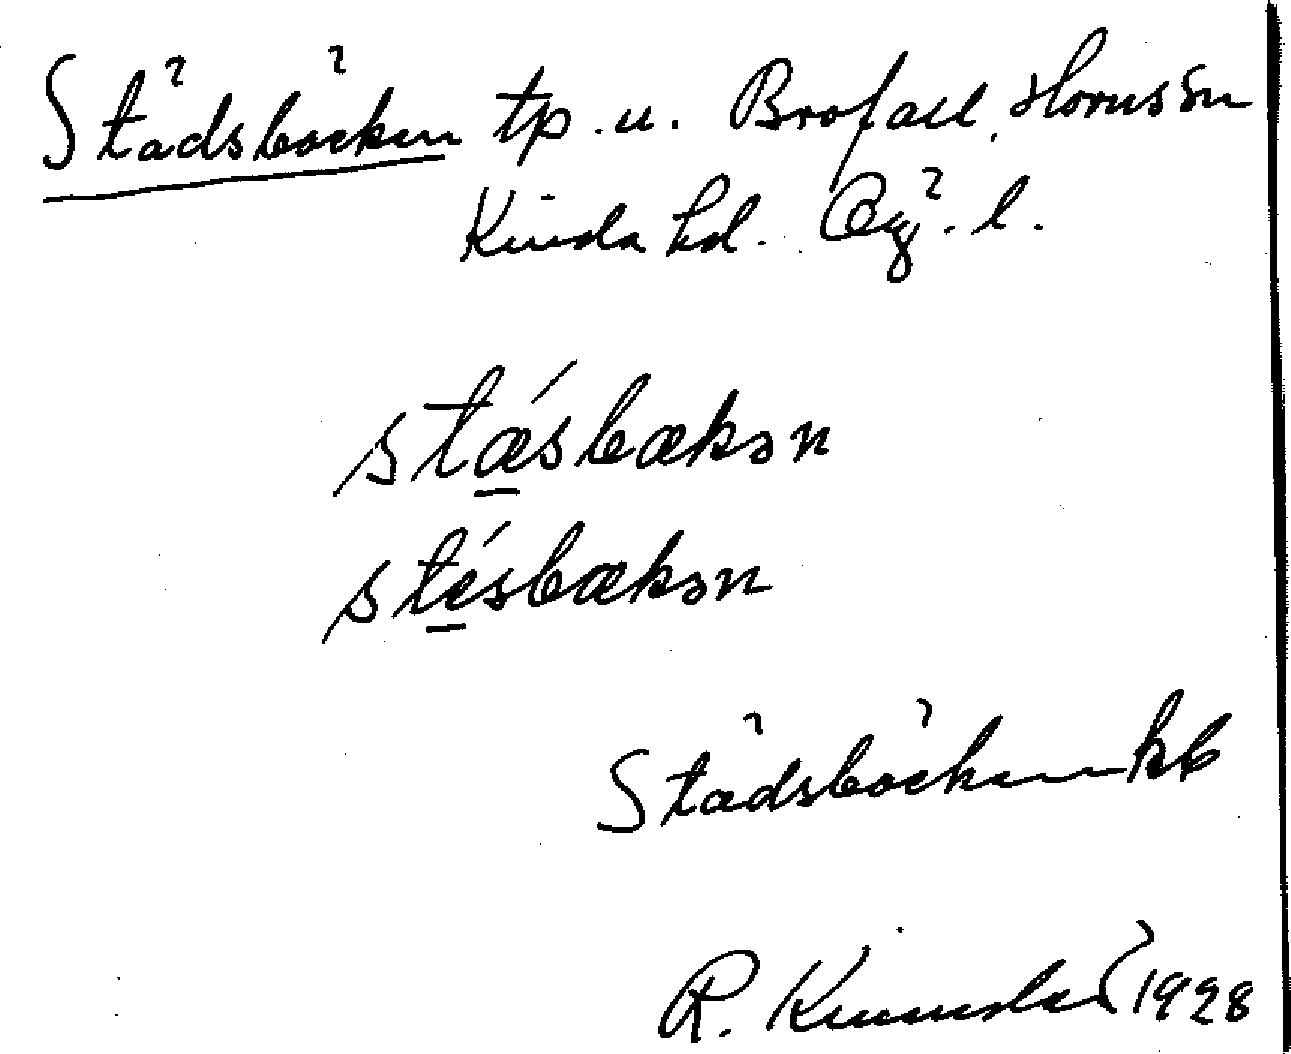 Städsbäcken tp. u. Brofall, Hornssn
Kinda hd. Ög. l.
stǽsbækən
stésbækən
Städsbäcken kb
R. 1928